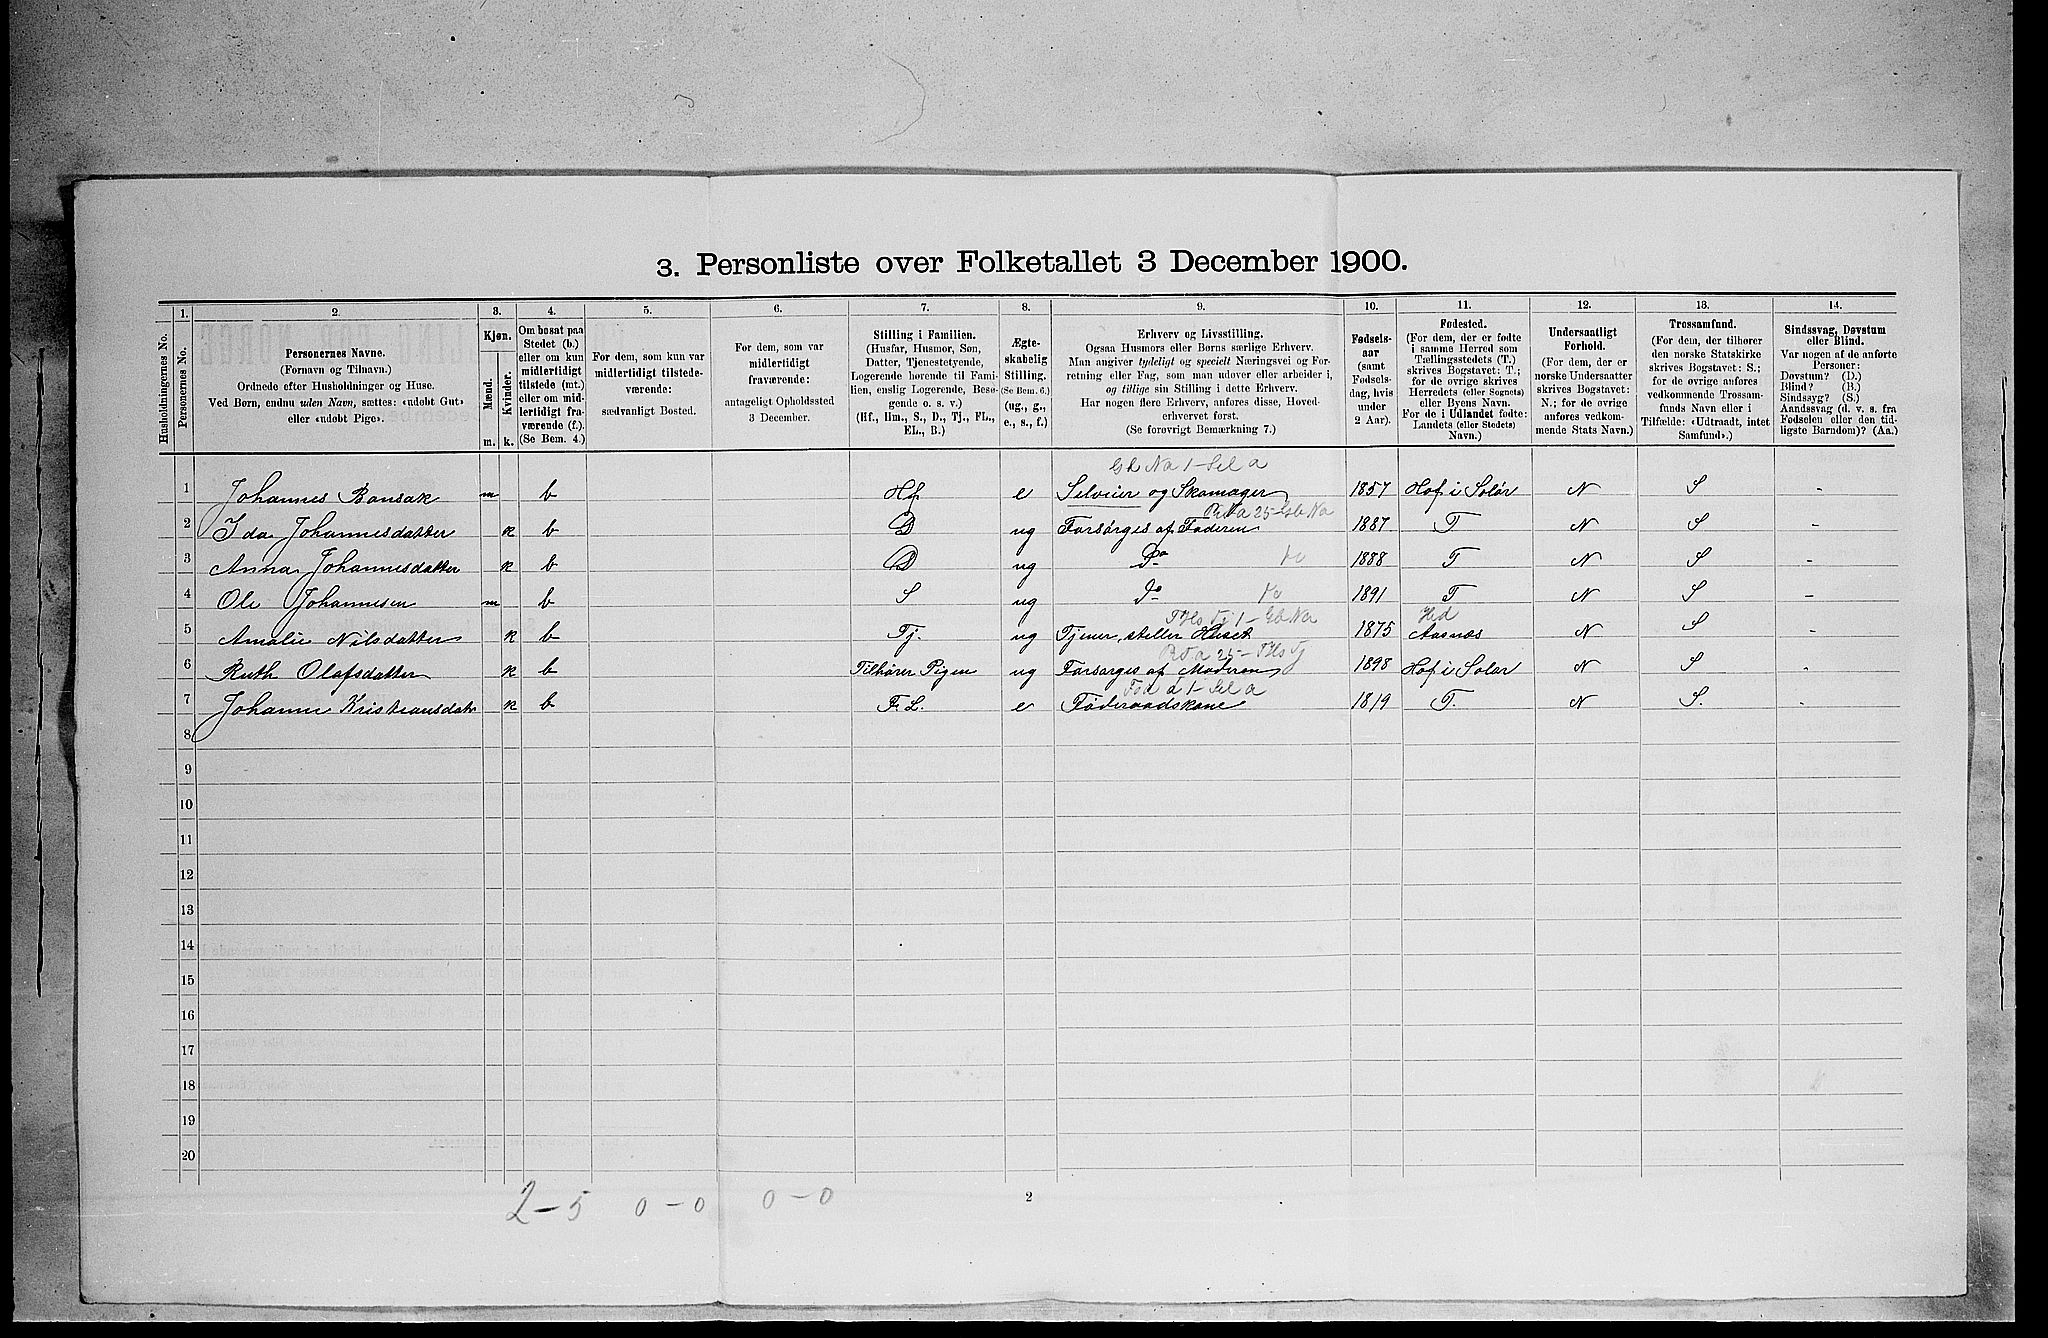 3. Personliste over Folketallet 3 December 1900.
1. 2. 3. 4. 5. 6. 7. 8. 9. 10. 11. 12. 13. 14.
Husholdningernes No.
Personernes No.
Personernes Navne.
(Fornavn og Tilnavn.)
Ordnede efter Husholdninger og Huse.
Ved Børn, endnu uden Navn, sættes: «udøbt Gut»
eller «udøbt Pige».
Kjøn.
Mænd.
Kvinder.
m. k.
Om bosat paa
Stedet (b.)
eller om kun
midlertidigt
tilstede (mt.)
eller om mid-
lertidigt fra-
værende (f.).
(Se Bem. 4.)
For dem, som kun var
midlertidigt tilstede-
værende:
sædvanligt Bosted.
For dem, som var
midlertidigt
fraværende:
antageligt Opholdssted
3 December.
Stilling i Familien.
(Husfar, Husmor, Søn,
Datter, Tjenestetyende,
Logerende hørende til Fami-
lien, enslig Logerende, Besø-
gende o. s. v.)
(Hf., Hm., S., D., Tj., FL.,
EL., B.)
Ægte-
skabelig
Stilling.
(Se Bem. 6.)
(ug., g.,
e., s., f.)
Erhverv og Livsstilling.
Ogsaa Husmors eller Børns særlige Erhverv.
Man angiver tydeligt og specielt Næringsvei og For-
retning eller Fag, som man udøver eller arbeider i,
og tillige sin Stilling i dette Erhverv.
Har nogen flere Erhverv, anføres disse, Hoved-
erhvervet først.
(Se forøvrigt Bemærkning 7.)
Fødsels-
aar
(samt
Fødsels-
dag, hvis
under
2 Aar).
Fødested.
(For dem, der er fødte
i samme Herred som
Tællingsstedets (T.)
skrives Bogstavet: T.;
for de øvrige skrives
Herredets (eller Sognets)
eller Byens Navn.
For de i Udlandet fødte:
Landets (eller Stedets)
Navn.)
Undersaatligt
Forhold.
(For dem, der er
norske Undersaatter
skrives Bogstavet:
N.; for de øvrige
anføres vedkom-
mende Stats Navn.)
Trossamfund.
(For dem, der tilhører
den norske Statskirke
skrives Bogstavet: S.;
for de øvrige anføres
vedkommende Trossam-
funds Navn eller i
Tilfælde: «Udtraadt, intet
Samfund».)
Sindssvag, Døvstum
eller Blind.
Var nogen af de anførte
Personer:
Døvstum? (D.)
Blind? (B.)
Sindssyg? (S.)
Aandssvag (d. v. s. fra
Fødselen eller den tid-
ligste Barndom)? (Aa.)
1 Johannes Bansak m b Hf e Selveier og Skomager 1857 Hof i Solør N S -
2 Ida Johannesdatter k b D ug Forsørges af Faderen 1887 T N S -
3 Anna Johannesdatter k b D ug Do 1888 T N S -
4 Ole Johannesen m b S ug Do 1891 T N S -
Hed
5 Amalie Nilsdatter k b Tj. ug Tjener, steller Huset 1875 Aasnæs N S -
6 Ruth Olafsdatter k b Tilhører Pigen ug Forsørges af Moderen 1898 Hof i Solør N S -
7 Johanne Kristiansdatr k b F. L. e Føderaadskone 1819 T. N S. -
8
9
10
11
12
13
14
15
16
17
18
19
20
2-5 0-0 0-0
2